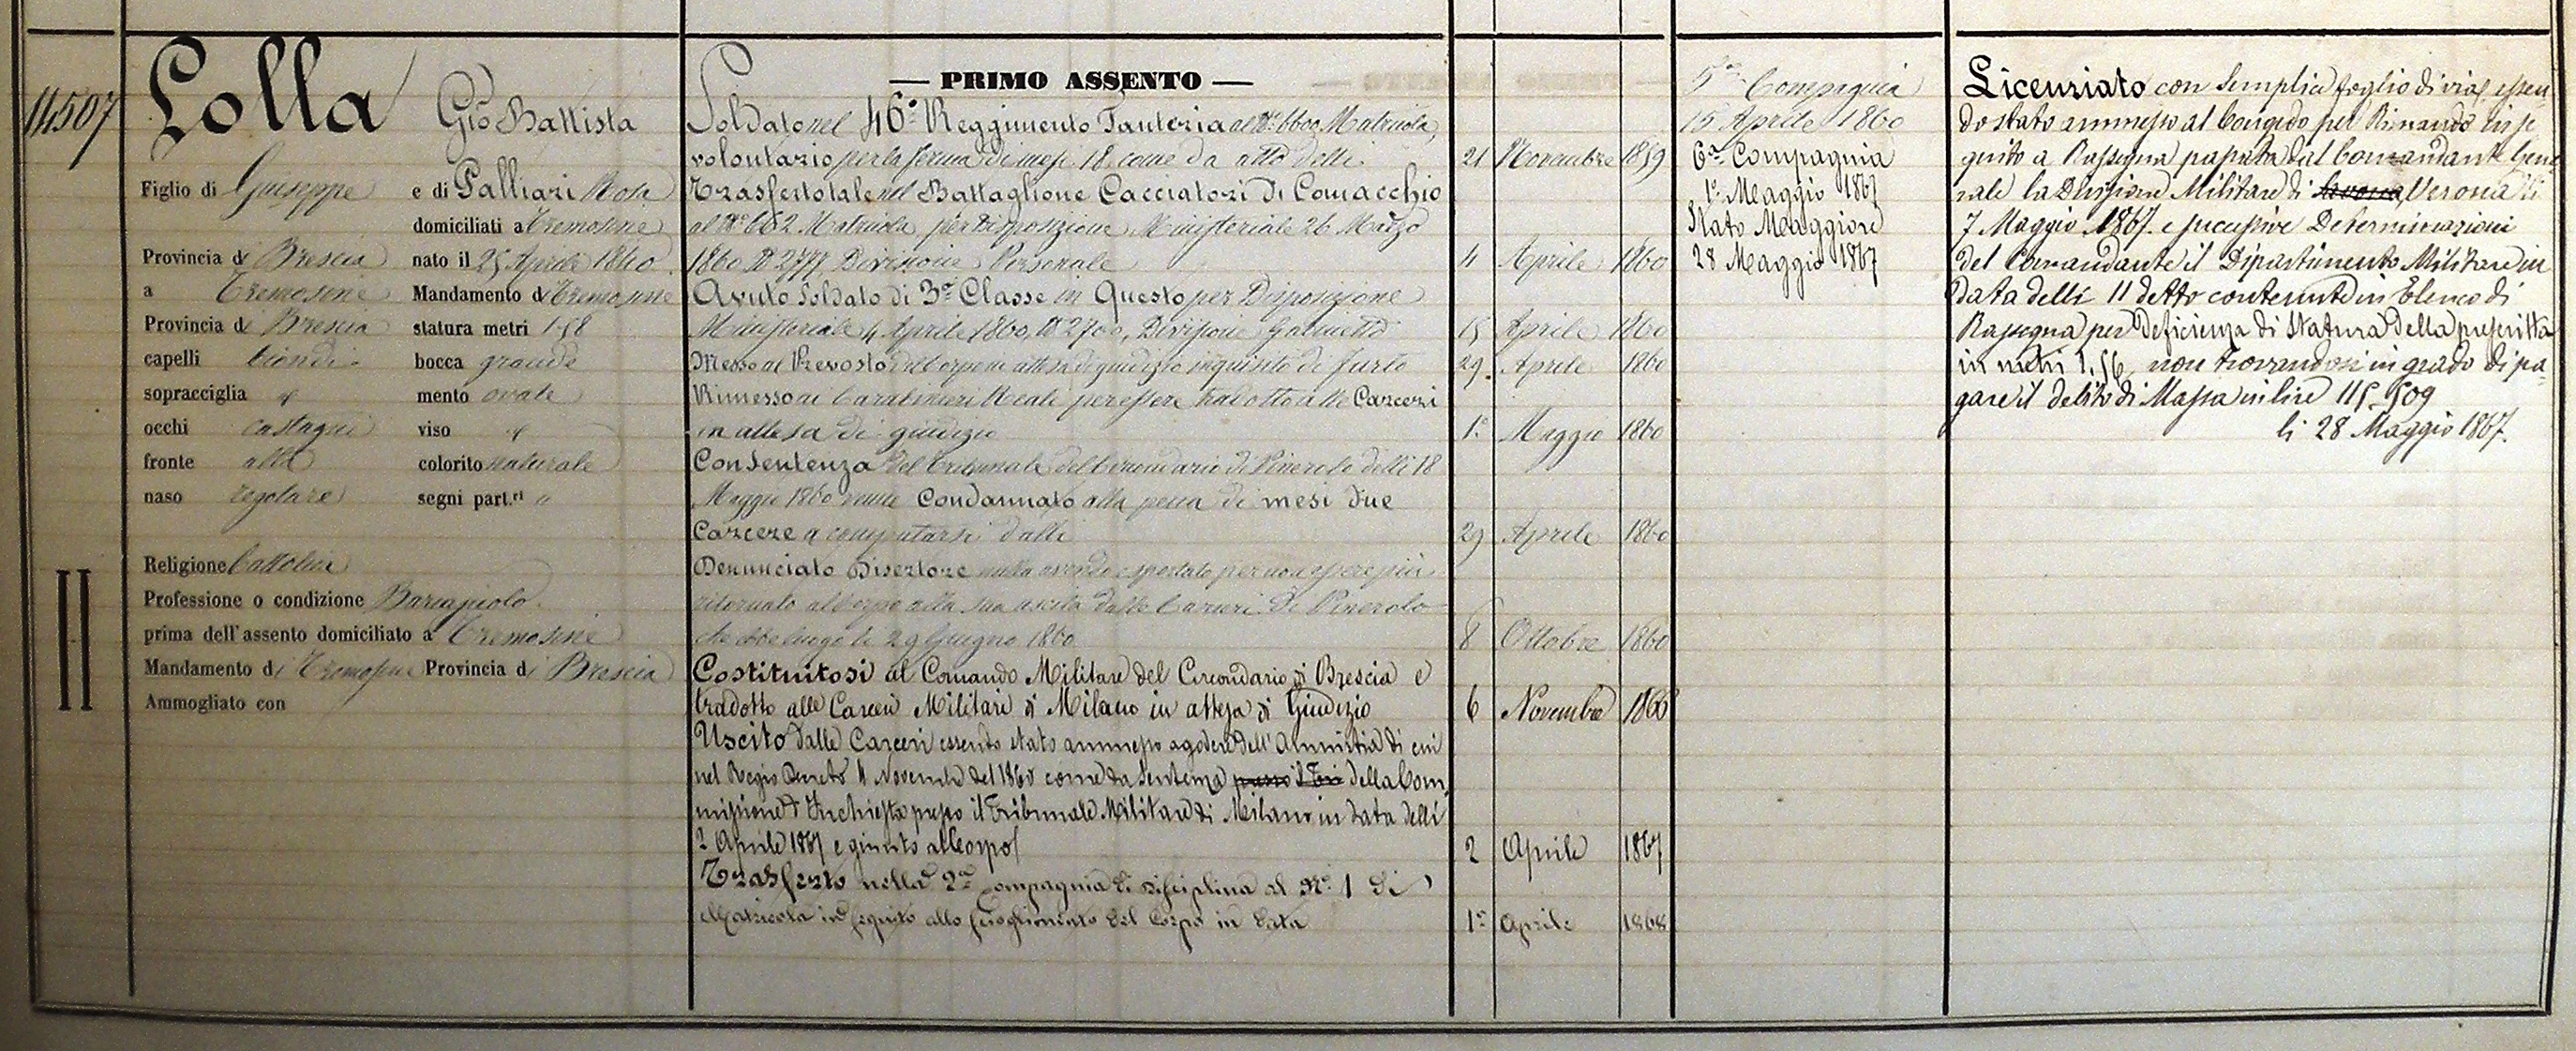 14507
Lolla Gio Battista
Figlio di Giuseppe e di Palliari Rosa
domiciliati a Tremosine
Provincia di Brescia nato il 25 Aprile 1840
a Tremosine Mandamento di Tremosine
Provincia di Brescia statura metri 1.58
capelli biondi bocca grande
sopracciglia id mento ovale
occhi castagni viso id
fronte alta colorito naturale
naso regolare segni part.ri "
Religione Cattolica
Professione o condizione Barcajuolo
prima dell'assento domiciliato a Tremosine
Mandamento di Tremosine Provincia di Brescia
Ammogliato con
II
— PRIMO ASSENTO —
Soldato nel 46° Reggimento Fanteria al N° 6600 Matricola,
volontario per la ferma di mesi 18 come da atto delli 21 Novembre 1859
Trasfertotale nel Battaglione Cacciatori di Comacchio
al N° 662 Matricola, per Disposizione Ministeriale 26 Marzo
1860 N 2777 Divisione Personale 4 Aprile 1860
Avuto Soldato di 3a Classe in Questo per Disposizione
Ministeriale 4 Aprile 1860, N 2700, Divisione Gabinetto 15 Aprile 1860
Messo al Prevosto del Corpo in attesa di giudizio inquisito di furto 29 Aprile 1860
Rimesso ai Carabinieri Reali per essere tradotto alle Carceri
in attesa di giudizio 1° Maggio 1860
Con Sentenza del Tribunale del Circondario di Pinerolo delli 18
Maggio 1860 venne Condannato alla pena di mesi due
Carcere a computarsi dalli 29 Aprile 1860
Denunciato Disertore nulla avendo esportato per non essere più
ritornato al Corpo alla sua uscita dalle Carceri di Pinerolo
che ebbe luogo li 29 Giugno 1860 8 Ottobre 1860
Costituitosi al Comando Militare del Circondario di Brescia e
tradotto alle Carceri Militari di Milano in attesa di Giudizio 6 Novembre 1866
Uscito dalle Carceri essendo stato ammesso a godere dell'Amnistia di cui
nel Regio Decreto 4 Novembre del 1866 come da Sentenza presso il Tri della Com
missione d'Inchiesta presso il Tribunale Militare di Milano in data delli
2 Aprile 1867 e giunto al Corpo 2 Aprile 1867
Trasferto nella 2a Compagnia di disciplina al N° 1 di
Matricola in seguito allo scioglimento del Corpo in data 1° Aprile 1868
5a Compagnia
15 Aprile 1860
6a Compagnia
1° Maggio 1867
Stato Maggiore
28 Maggio 1867
Licenziato con semplice foglio di via, essen
do stato ammesso al Congedo per Rimando in se
guito a Rassegna passata dal Comandante Gene
rale la Divisione Militare di Verona li
7 Maggio 1867 e successive Determinazioni
del Comandante il Dipartimento Militare in
data delli 11 detto contenute in Elenco di
Rassegna per Deficienza di Statura della prescritta
in metri 1,56, non trovandosi in grado di pa
gare il debito di Massa in lire 115.509
li 28 Maggio 1867.